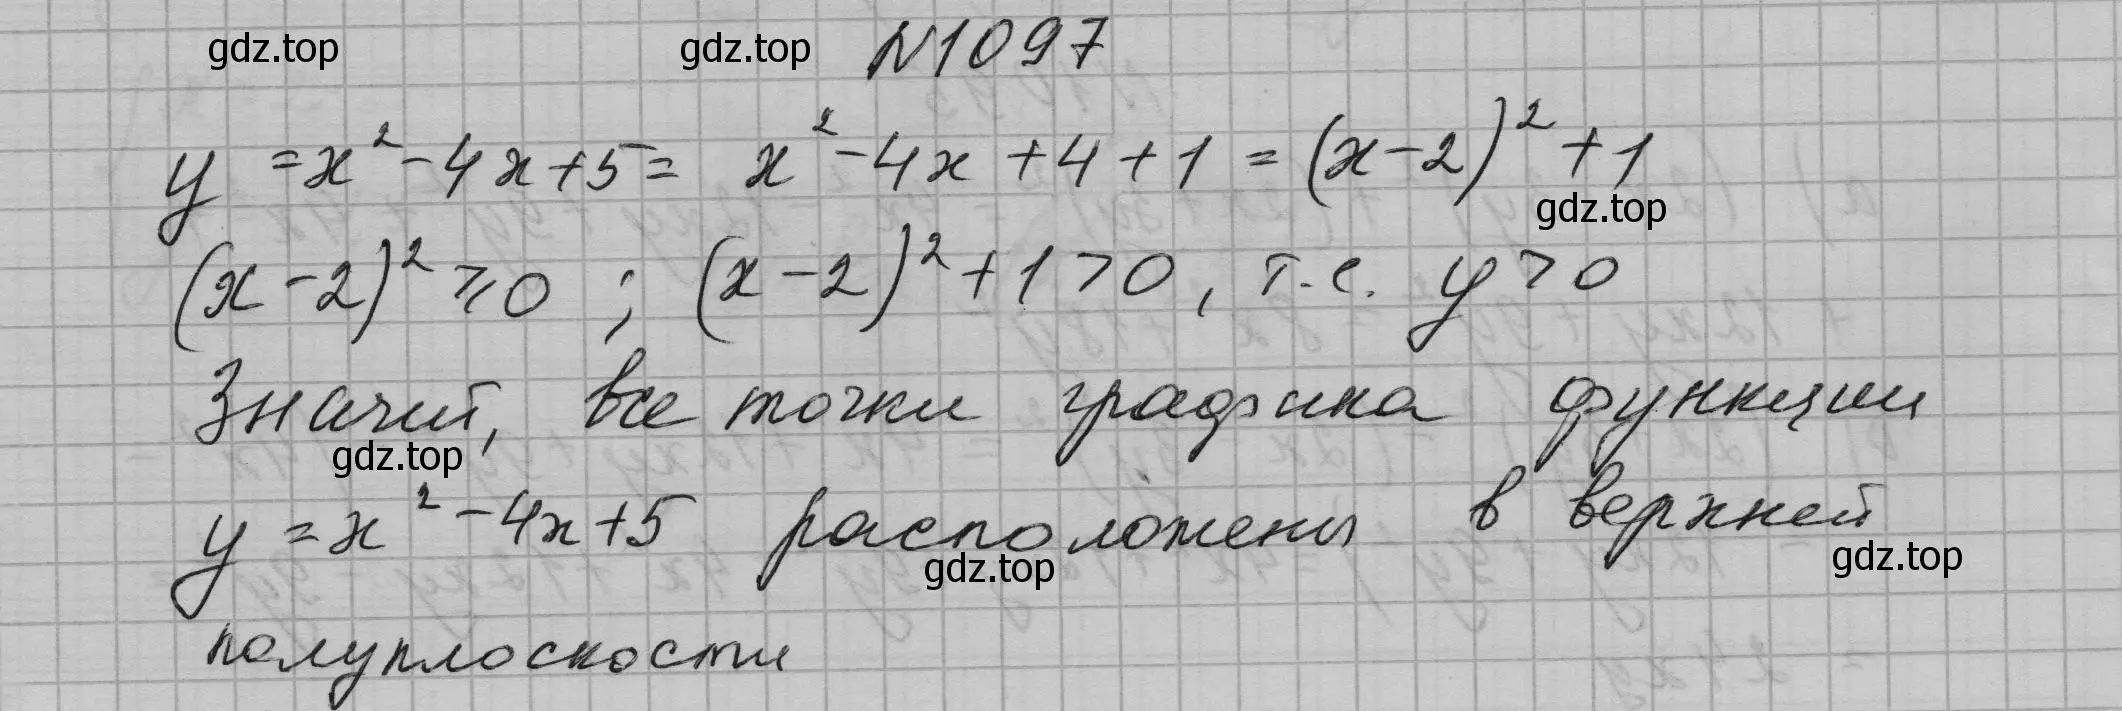 gdz.top gdz.top N1097
y = x² - 4x + 5 = x² - 4x + 4 + 1 = (x - 2)² + 1
gdz.top
(x - 2)² ≥ 0 ; (x - 2)² + 1 > 0, т.е. y > 0
Значит, все точки графика функции
gdz.top
y = x² - 4x + 5 расположены в верхней
gdz.top gdz.top
полуплоскости